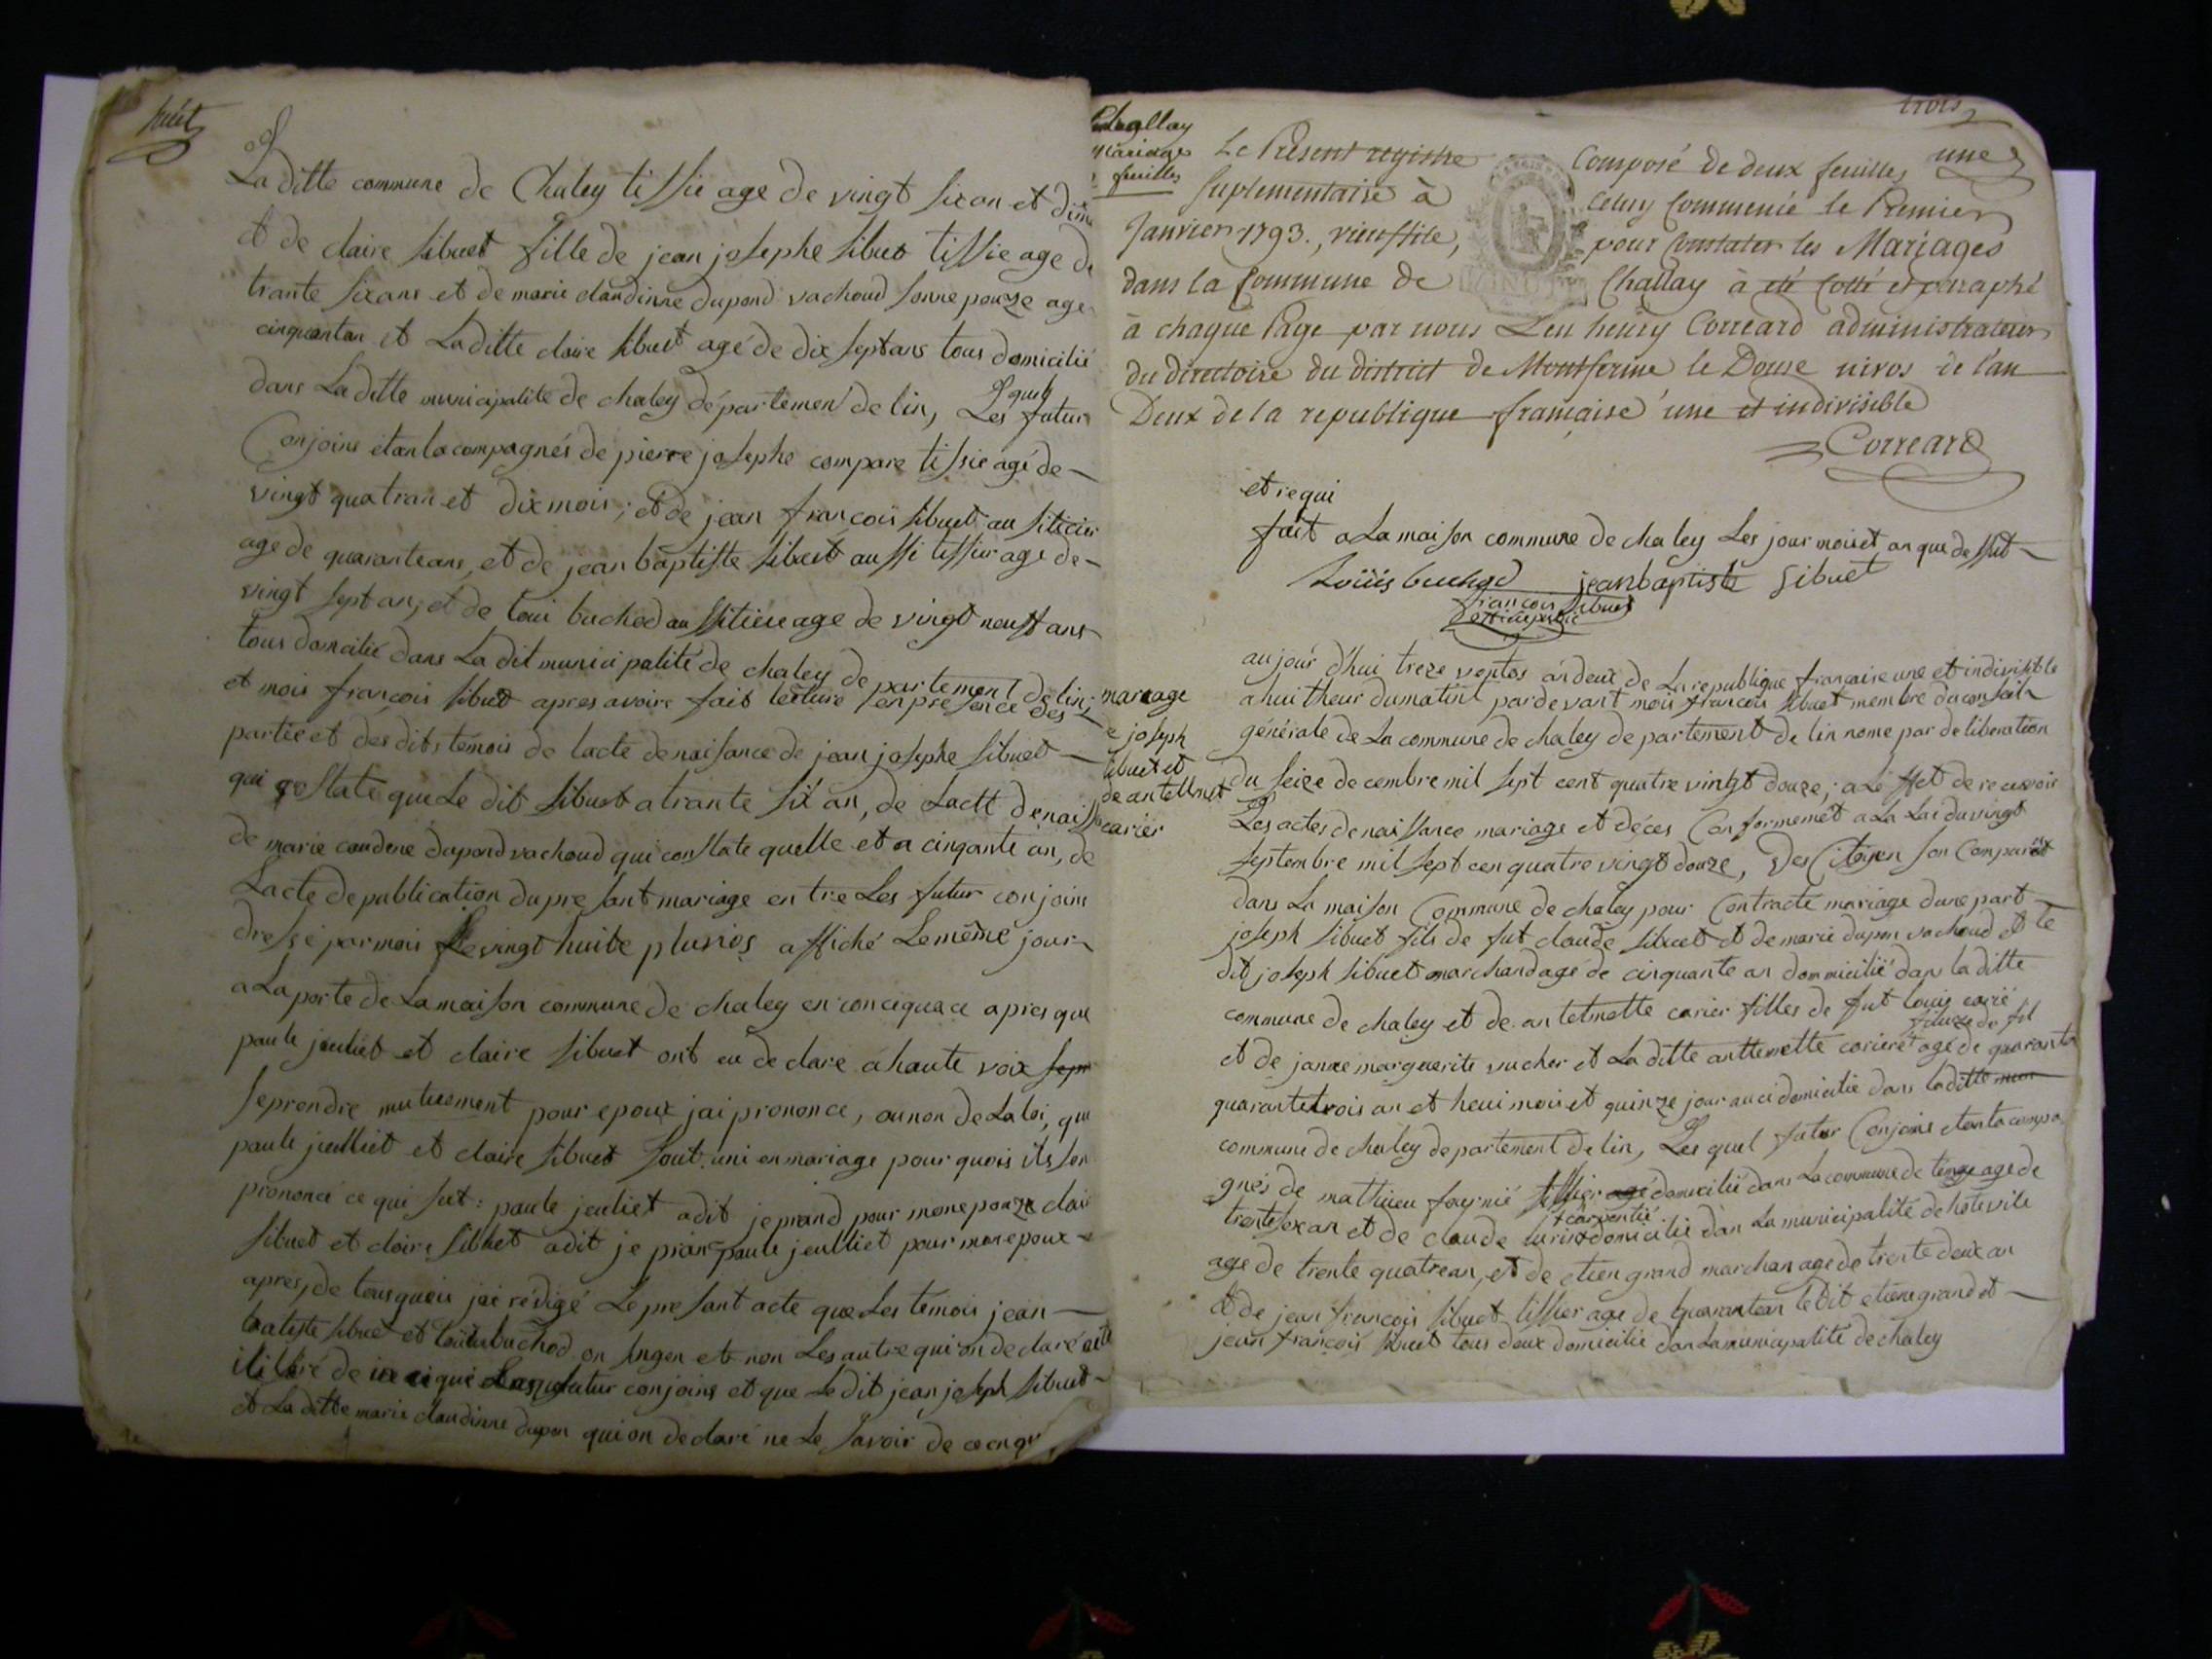 huit
La ditte commune de Chaley tissie age de vingt sixan et dim
et de claire sibuet fille de jean josephe sibuet tissie age de
trante sixans et de marie claudinne dupond vachoud sonne pouze age
cinquantan et La ditte claire sibuet agé de dix septans tous domicilié
dans La ditte municipalité de chaley département de lin, Les quel futur
Conjoins étan lacompagnés de pierre josephe compare tissie agé de
vingt quatran et dix mois; et de jean françois sibuet au sitiéier
age de quaranteans, et de jean baptiste sibuet aussi tissier age de
vingt septan; et de loui buchod au ssitiéie age de vingt neuf ans
tous domcilié dans La dit municipalité de chaley de partement de lin;
et mois françois sibuet apres avoire fait lecture en presence des
partie et des dits témois de lacte de naissance de jean josephe sibuet
qui costate que Le dit sibuet a trante six an, de Lactt de naiss
de marie caudene dupond vachoud qui constate quelle et a cinqante an, de
Lacte de publication du pre sant mariage en tre Les futur conjoins
dressé par mois Le vingt huite pluvios affiché Le même jour
a La porte de La maison commune de chaley en concequace apres que
paule jeuliet et claire sibuet ont eu de clare a haute voix sepr
seprendre mutuement pour epoux jai prononce, ou non de La loi, que
paule jeulliet et claire sibuet sout uni en mariage pour quois ils son
prononcé ce qui sut: paule jeuliet adit je prand pour mone pouze clair
sibuet et claire sibuet adit je pran paule jeulliet pour mone poux
apres, de tous quois jai rédigé Le pre sant acte que Les témois jean
batiste sibuet et buchod on singen et non Les autre qui on de claré
ilitéré de ce que futur conjoins et que Le dit jean joseph sibuet
et La ditte marie claudinne dupon qui on de claré ne Le savoir de ce
trois
une
Challay
Mariages
feuilles
Le Présent registre Composé de deux feuilles
Suplementaire à Celuy Commencé le Premier
Janvier 1793., vieustile, pour Constater les Mariages
dans la Commune de Challay à été Cotté et parraphé
à chaque Page par nous Leu henry Correard administrateur
du directoire du district de Montferme le Douse nivos de l'an
Deux de la republique française une et indivisible
Correard
et requi
fait a La maison commune de chaley Les jour mois et an que de ssut
Loüis buchod jean baptiste sibuet
françois sibuet
officie public
mareage
e joseph
sibuet et
de antelmet
carier
aujour d'hui treze ventos an deux de La republique françaire une et indivisible
a huit heur du matint par devant mois françois sibuet membre du conseil
générale de La commune de chaley de partement de lin nome par de liberation
du seize de cembre mil sept cent quatre vingt douze; a Lé ffet de re cevoir
Les actes de naissance mariage et déces Con formemét a La Lai du vingt
septembre mil sept cen quatre vingt douze, Des Citoyen son Comparut
dans La maison Commune de chaley pour Contracté mariage dune part
joseph sibuet fils de fut claude sibuet et de marie dupon vachoud et le
dit joseph sibuet marchand agé de cinquante an dommicilié dans la ditte
commune de chaley et de antelmette carier filles de fut louis carié
et de janne marguerite vucher et La ditte anttemette coriere fileuze de fil agé de quaranta
quarante trois an et heui mois et quinze jour auci domicilie dans la ditte mun
commune de chaley departement de lin, Les quel futur Conjoins etanta compa
gnés de mathieu fournié tissier agé domicilié dans La commune de tenay age de
trente sex an et de claude + carpentié domicilié dan La municipalité de hotevile
age de trente quatrean, et de etien grand marchan age de trente deux an
et de jean françois sibuet tissier age de quarantean le dit etiene grand et
jean françois sibuet tous deux domicilié dan La municipalité de chaley